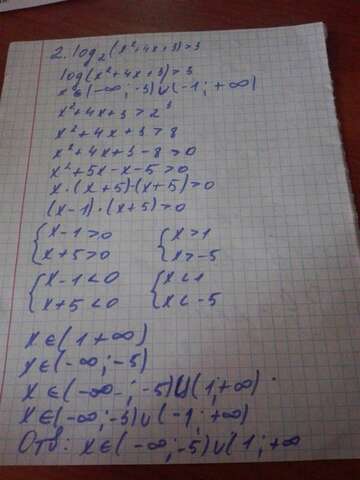 2. log₂(x²+4x+3)>3
log(x²+4x+3)>3
x∈(-∞;-3)∪(-1;+∞)
x²+4x+3>2³
x²+4x+3>8
x²+4x+3-8>0
x²+5x-x-5>0
x·(x+5)-(x+5)>0
(x-1)·(x+5)>0
{x-1>0 {x>1
x+5>0 x>-5
{x-1<0 {x<1
x+5<0 x<-5
x∈(1+∞)
x∈(-∞;-5)
x∈(-∞-;-5)∪(1;+∞).
x∈(-∞;-3)∪(-1;+∞)
Отв: x∈(-∞;-5)∪(1;+∞